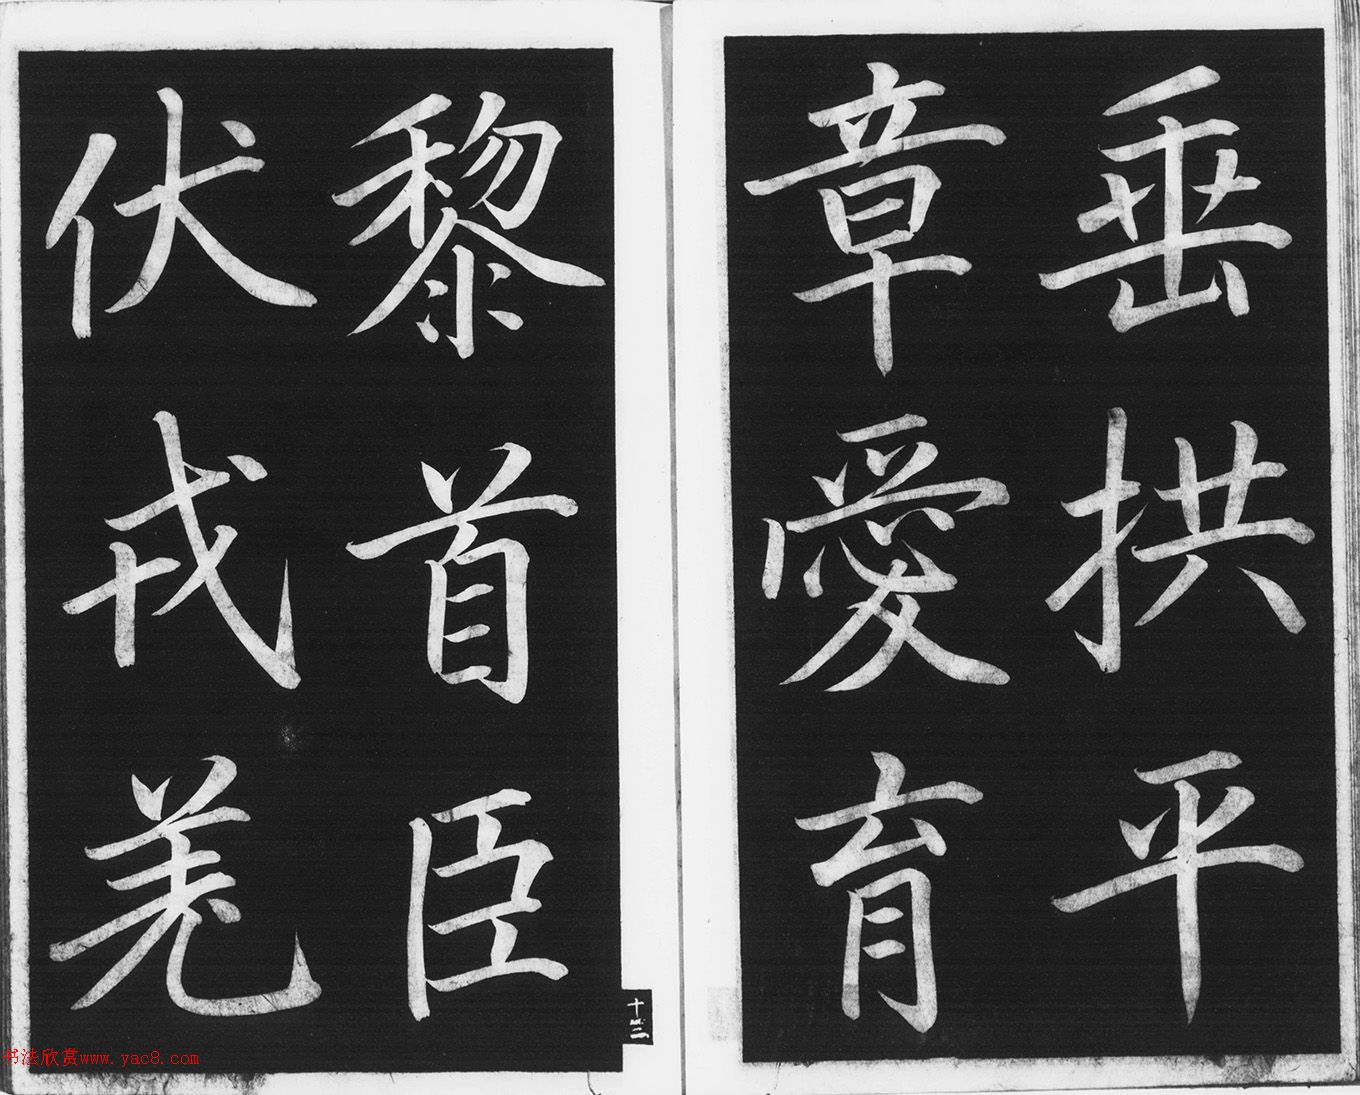 垂拱平
章愛育
黎首臣
伏戎羌
书法欣赏www.yac8.com